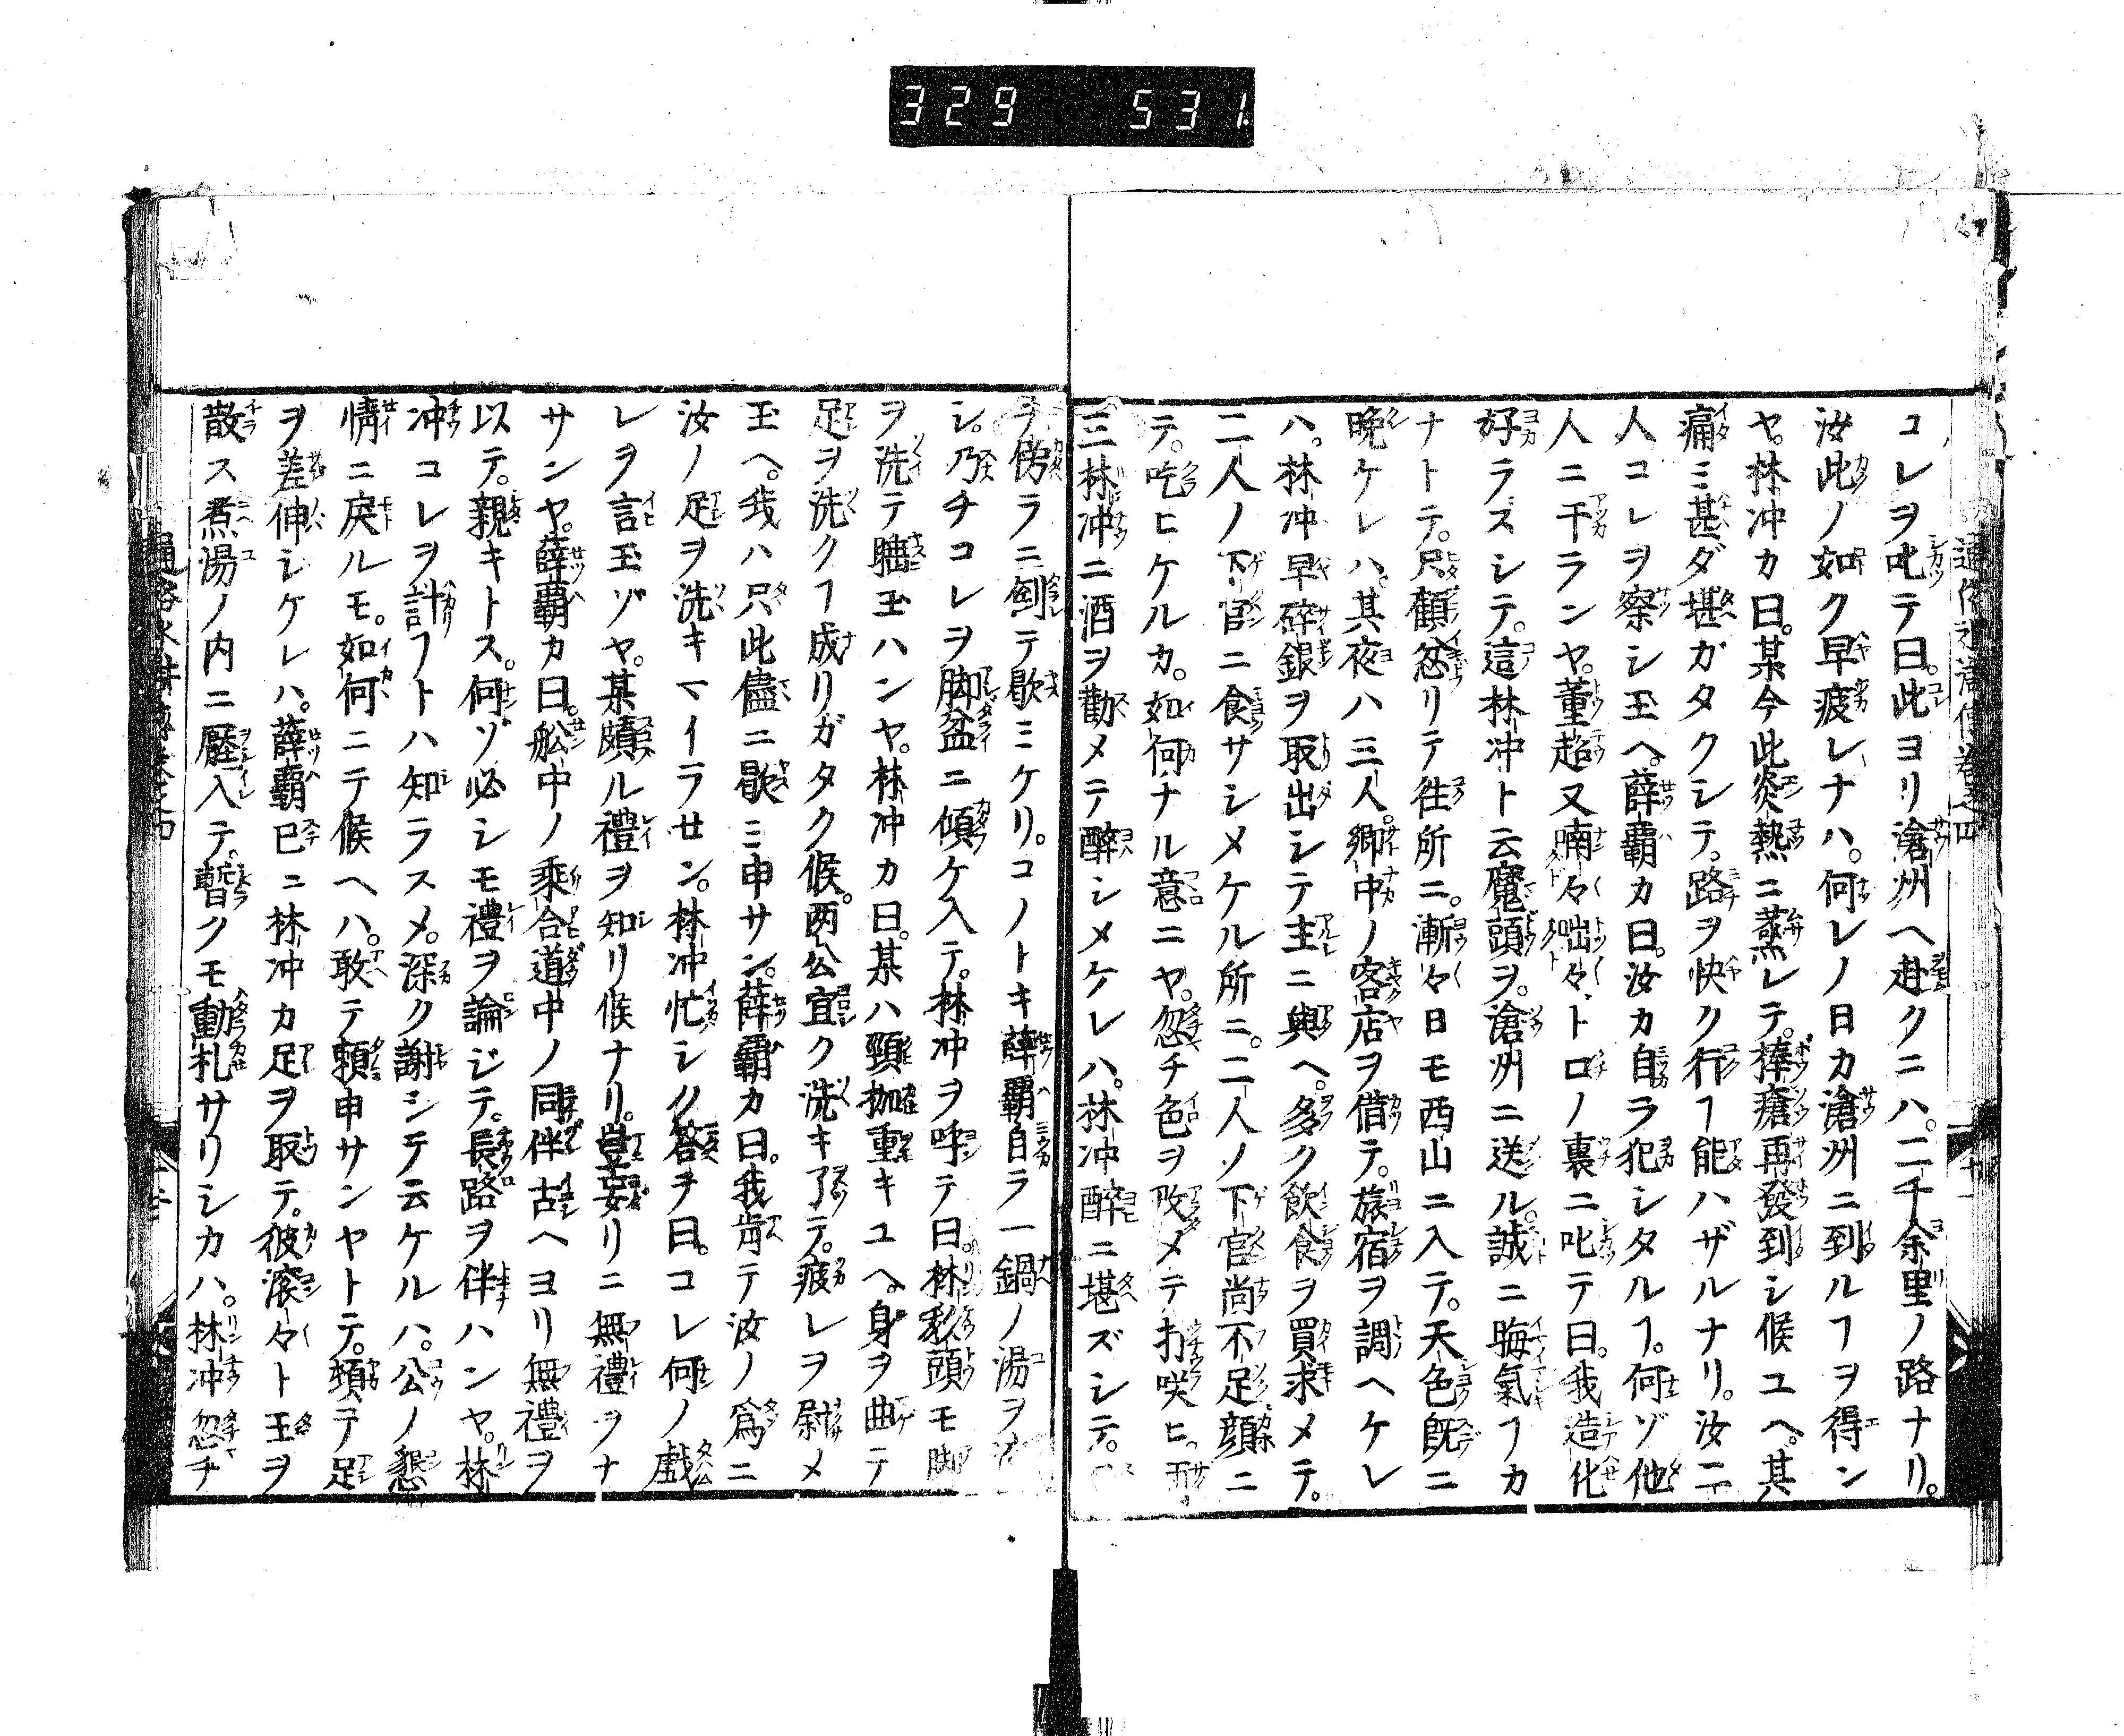 329 531
通俗水滸傳卷之四
コレヲ叱テ曰。此ヨリ滄州ヘ赴クニハ。二千余里ノ路ナリ。
汝此ノ如ク早疲レナハ。何レノ日カ滄州ニ到ルヿヲ得ン
ヤ。林冲カ曰。某今此炎熱ニ蒸レテ。棒瘡再發到シ候ユヘ。其
痛ミ甚ダ堪ガタクシテ。路ヲ快ク行ヿ能ハザルナリ。汝二
人コレヲ察シ玉ヘ。薛覇カ曰。汝カ自ラ犯シタルヿ。何ゾ他
人ニ干ランヤ。董超又喃々咄々ト口ノ裏ニ叱テ曰。我造化
好ラズシテ。這林冲ト云魔頭ヲ。滄州ニ送ル。誠ニ晦氣ヿカ
ナトテ。只顧忿リテ徃所ニ。漸々日モ西山ニ入テ。天色既ニ
晩ケレハ。其夜ハ三人。郷中ノ客店ヲ借テ。旅宿ヲ調ヘケレ
ハ。林冲早碎銀ヲ取出シテ主ニ與ヘ。多ク飲食ヲ買求メテ。
二人ノ下官ニ食サシメケル所ニ。二人ノ下官尚不足顔ニ
テ。吃ヒケルカ。如何ナル意ニヤ。忽チ色ヲ改メテ打咲ヒ。再
三林冲ニ酒ヲ勸メテ醉シメケレハ。林冲醉ニ堪ズシテ。
ヲ傍ラニ劍テ歇ミケリ。コノトキ薛覇自ラ一鍋ノ湯ヲ
シ。乃チコレヲ脚盆ニ傾ケ入テ。林冲ヲ呼テ曰。林敎頭モ脚
ヲ洗テ睡玉ハンヤ。林冲カ曰。某ハ頸枷重キユヘ。身ヲ曲テ
足ヲ洗クヿ成リガタク候。两公宜ク洗キ了テ。疲レヲ尉メ
玉ヘ。我ハ只此儘ニ歇ミ申サン。薛覇カ曰。我肯テ汝ノ爲ニ
汝ノ足ヲ洗キマイラセン。林冲忙シク答チ曰。コレ何ノ戯
レヲ言玉ゾヤ。某頗ル禮ヲ知リ候ナリ。豈妄リニ無禮ヲナ
サンヤ。薛覇カ曰。舩中ノ乘合道中ノ同伴古ヘヨリ無禮ヲ
以テ。親キトス。何ゾ必シモ禮ヲ論ジテ。長路ヲ伴ハンヤ。林
冲コレヲ計ヿトハ知ラスメ。深ク謝シテ云ケルハ。公ノ懇
情ニ戾ルモ。如何ニテ候ヘハ。敢テ頼申サンヤトテ。頓テ足
ヲ差伸シケレハ。薛覇已ニ林冲カ足ヲ取テ。彼滚々ト玉ヲ
散ス煮湯ノ内ニ壓入テ。暫クモ動扎サリシカハ。林冲忽チ
通俗水滸傳卷之四